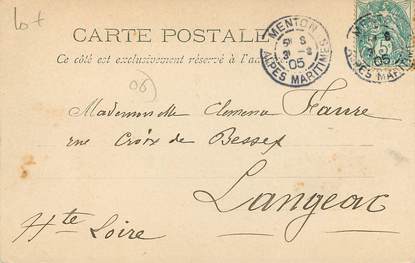 lot
CARTE POSTALE
Ce côté est exclusivement réservé à l'ad
MENTON
8
05
ALPES MARITIMES
MENTON
8
05
5c
06
Mademoiselle Clemence Faure
rue Croix de Besses
Langeac
Hte Loire